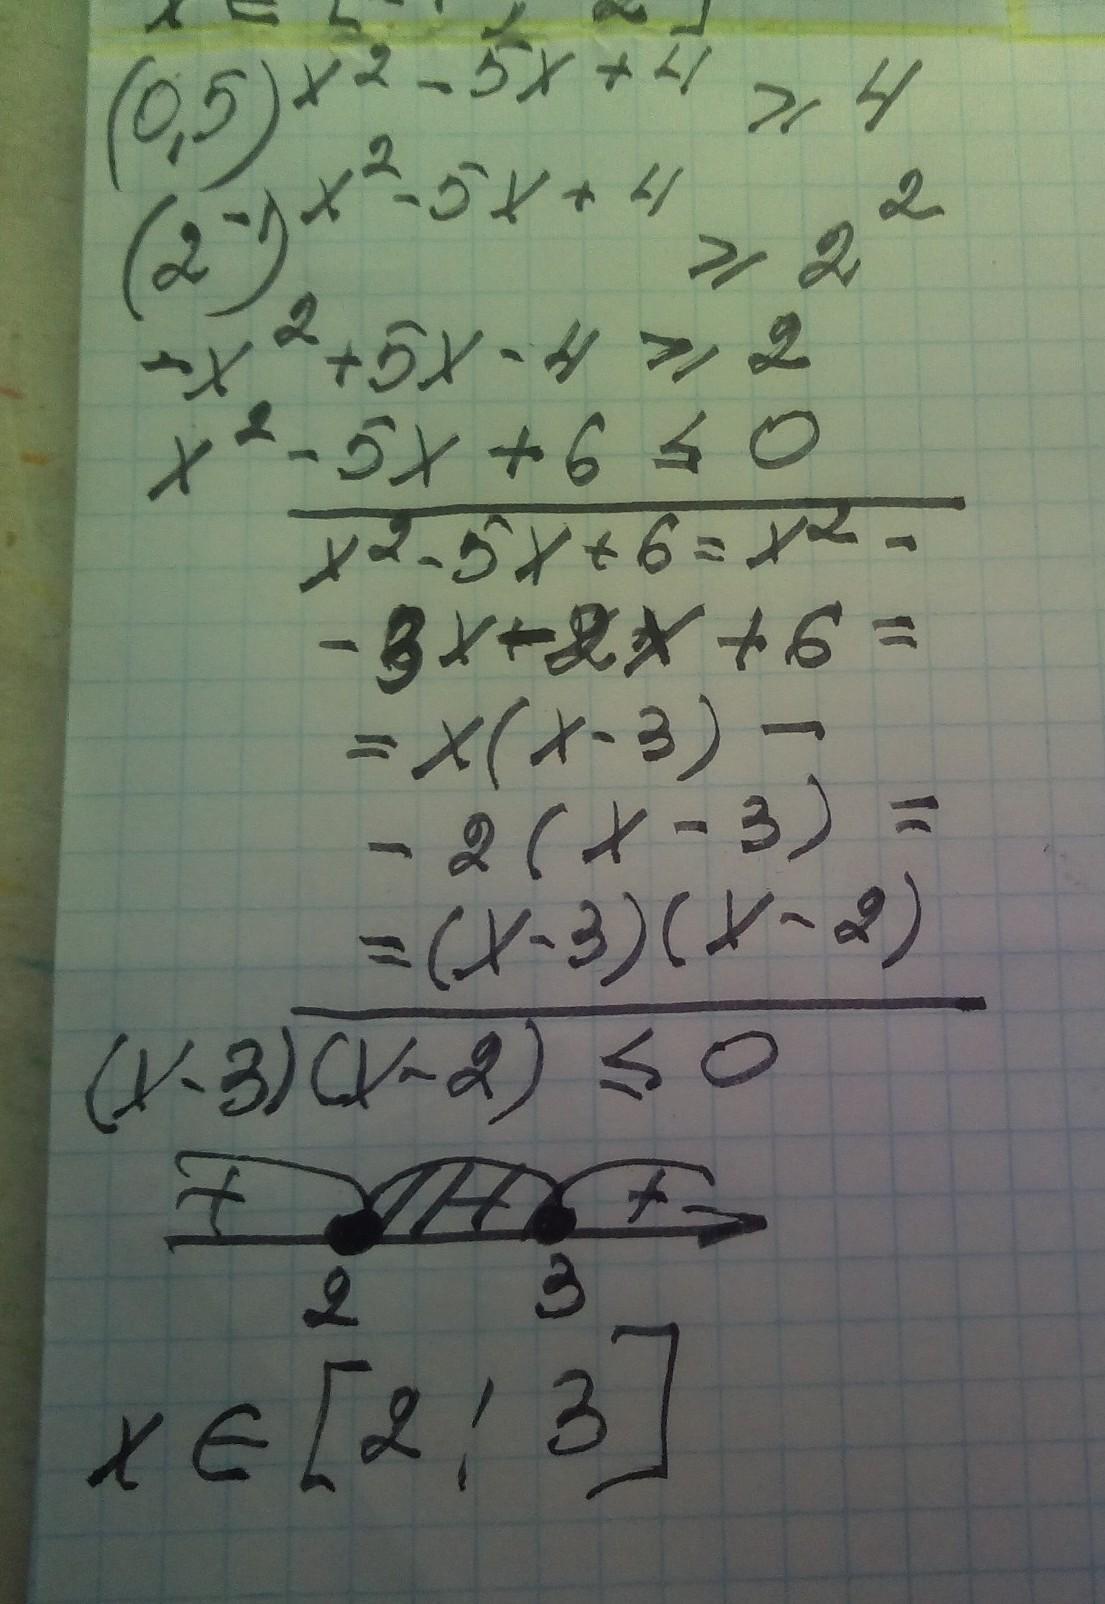 (0,5)^{x² - 5x + 4} ≥ 4
(2⁻¹)^{x² - 5x + 4} ≥ 2²
-x² + 5x - 4 ≥ 2
x² - 5x + 6 ≤ 0
x² - 5x + 6 = x² -
- 3x - 2x + 6 =
= x(x - 3) -
- 2(x - 3) =
= (x - 3)(x - 2)
(x - 3)(x - 2) ≤ 0
+ - +
2 3
x ∈ [2; 3]